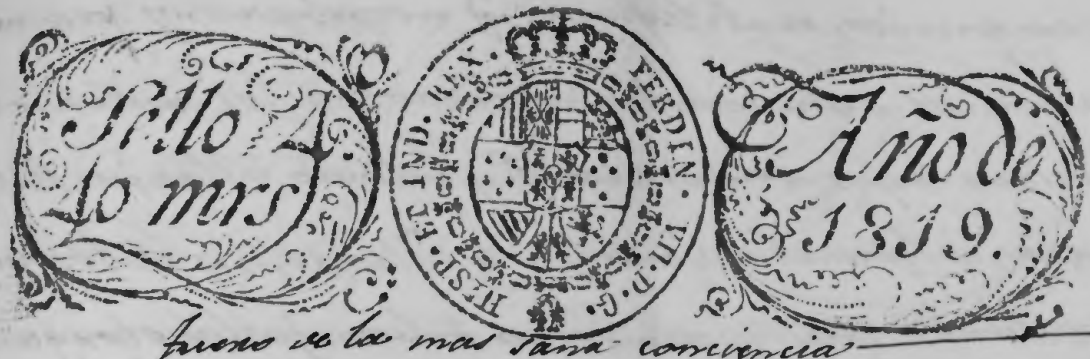 Sello 4.
40 mrs
FERDIN. VII. D. G. HISP. ET IND. REX.
Año de
1819.
fuero de la mas sana conciencia